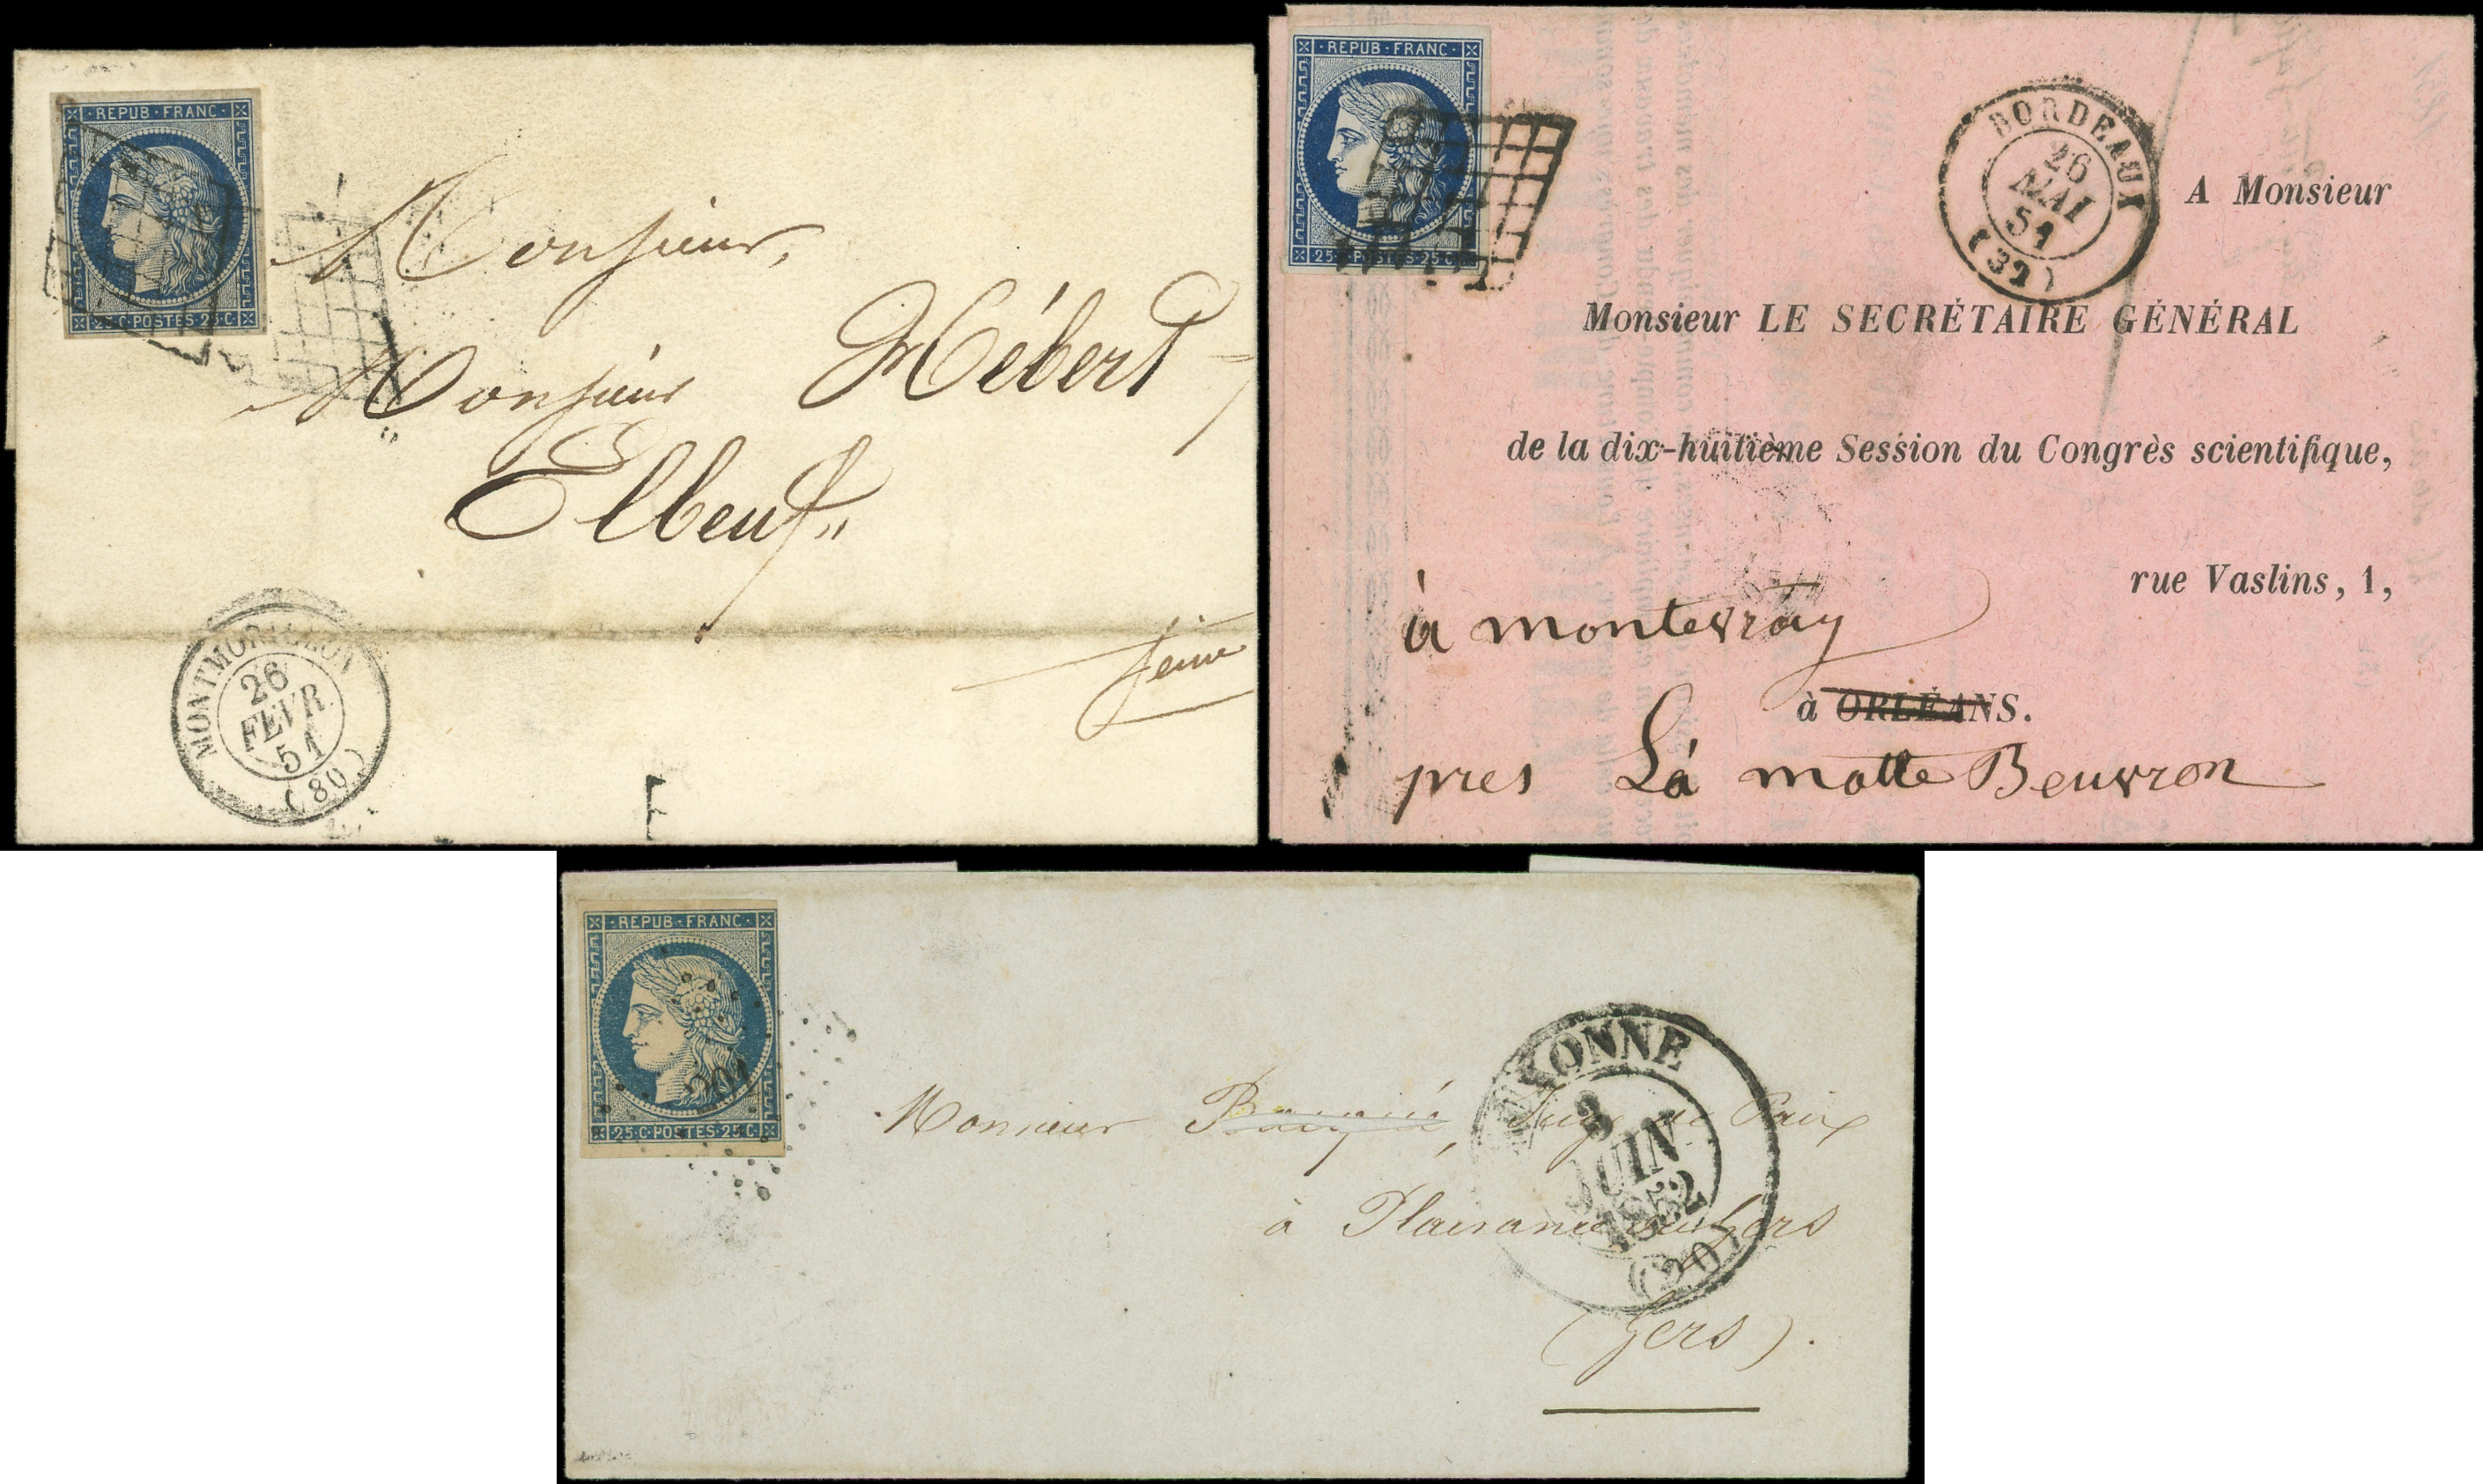 REPUB·FRANC·
25·C·POSTES·25·C·
Monsieur,
Monsieur Hébert
Elbeuf
Seine
MONTMORILLON
26
FEVR.
51
(80)
REPUB·FRANC·
25·C·POSTES·25·C·
BORDEAUX
26
MAI
51
(32)
A Monsieur
Monsieur LE SECRÉTAIRE GÉNÉRAL
de la dix-huitième Session du Congrès scientifique,
rue Vaslins, 1,
à montevray
à ORLÉANS.
pres La motte Beuvron
REPUB·FRANC·
25·C·POSTES·25·C·
201
Monsieur Juge de Paix
à Plaisance du Gers
(Gers).
AUXONNE
3
JUIN
1852
(20)